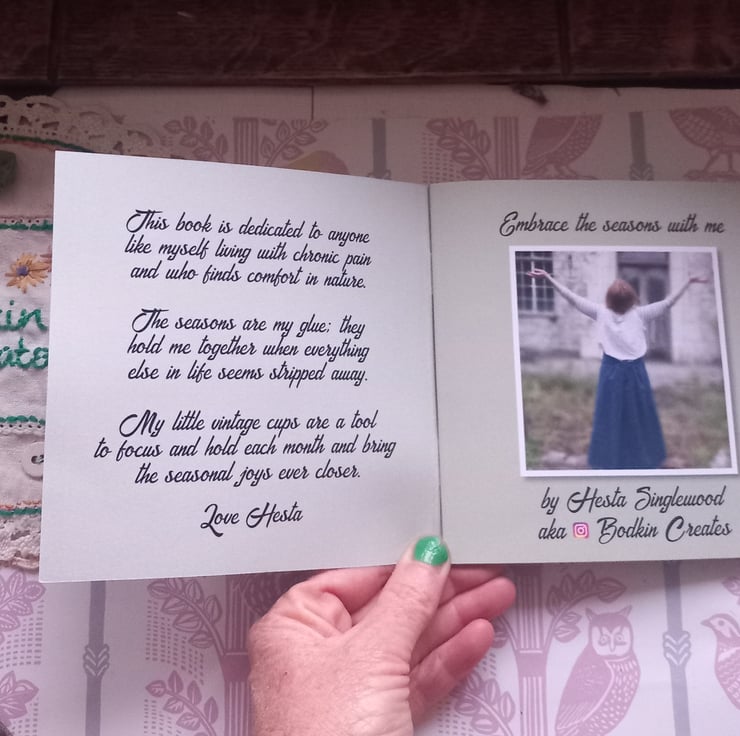 This book is dedicated to anyone
like myself living with chronic pain
and who finds comfort in nature.
The seasons are my glue; they
hold me together when everything
else in life seems stripped away.
My little vintage cups are a tool
to focus and hold each month and bring
the seasonal joys ever closer.
Love Hesta
Embrace the seasons with me
by Hesta Singlewood
aka Bodkin Creates